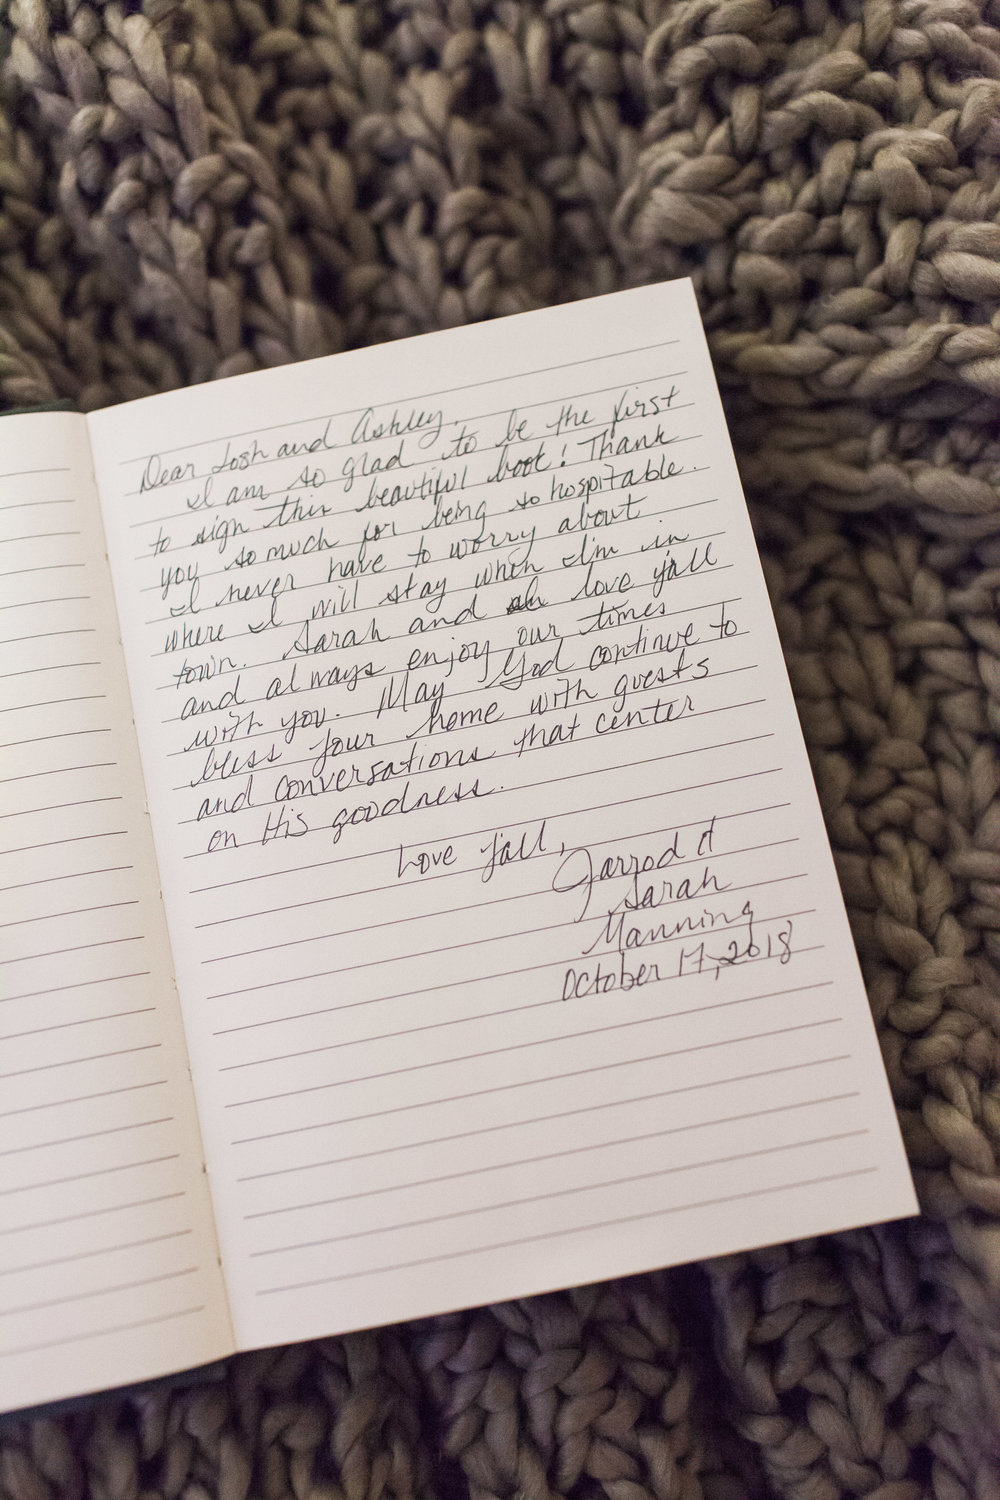 Dear Josh and Ashley,
I am so glad to be the first
to sign this beautiful book! Thank
you so much for being so hospitable.
I never have to worry about
where I will stay when I'm in
town. Sarah and love y'all
and always enjoy our times
with you. May God continue to
bless your home with guests
and conversations that center
on His goodness.
Love y'all,
Jarrod &
Sarah
Manning
October 17, 2018